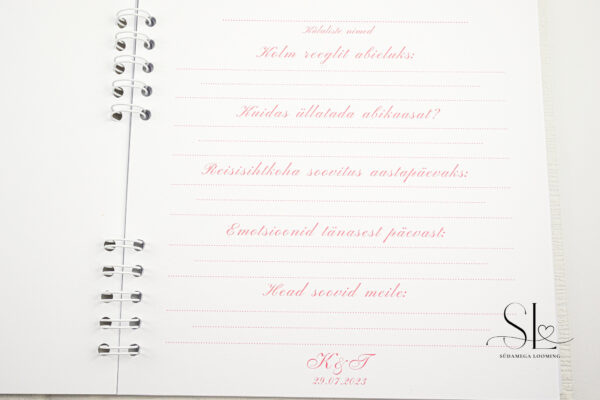 Külaliste nimed
Kolm reeglit abieluks:
Kuidas üllatada abikaasat?
Reisisihtkoha soovitus aastapäevaks:
Emotsioonid tänasest päevast:
Head soovid meile:
K&T
29.07.2023
SL
SÜDAMEGA LOOMING